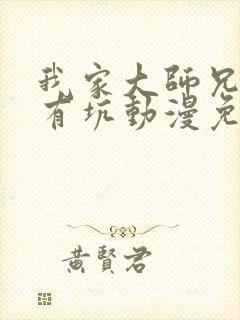 我家大師兄
有坑動漫免
黃賢君